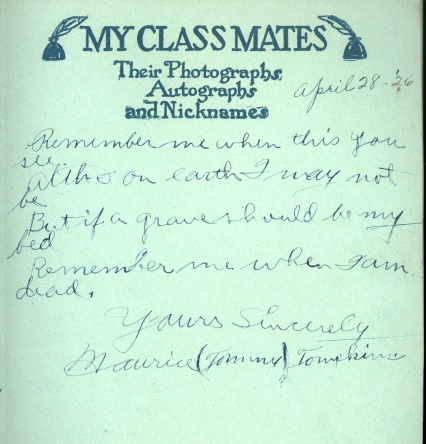 MY CLASS MATES
Their Photographs
Autographs
and Nicknames
April 28-'26
Remember me when this you
see.
Altho on earth I may not
be
But if a grave should be my
bed
Remember me when I am
dead.
Yours Sincerely
Maurice (Tommy) Tompkins